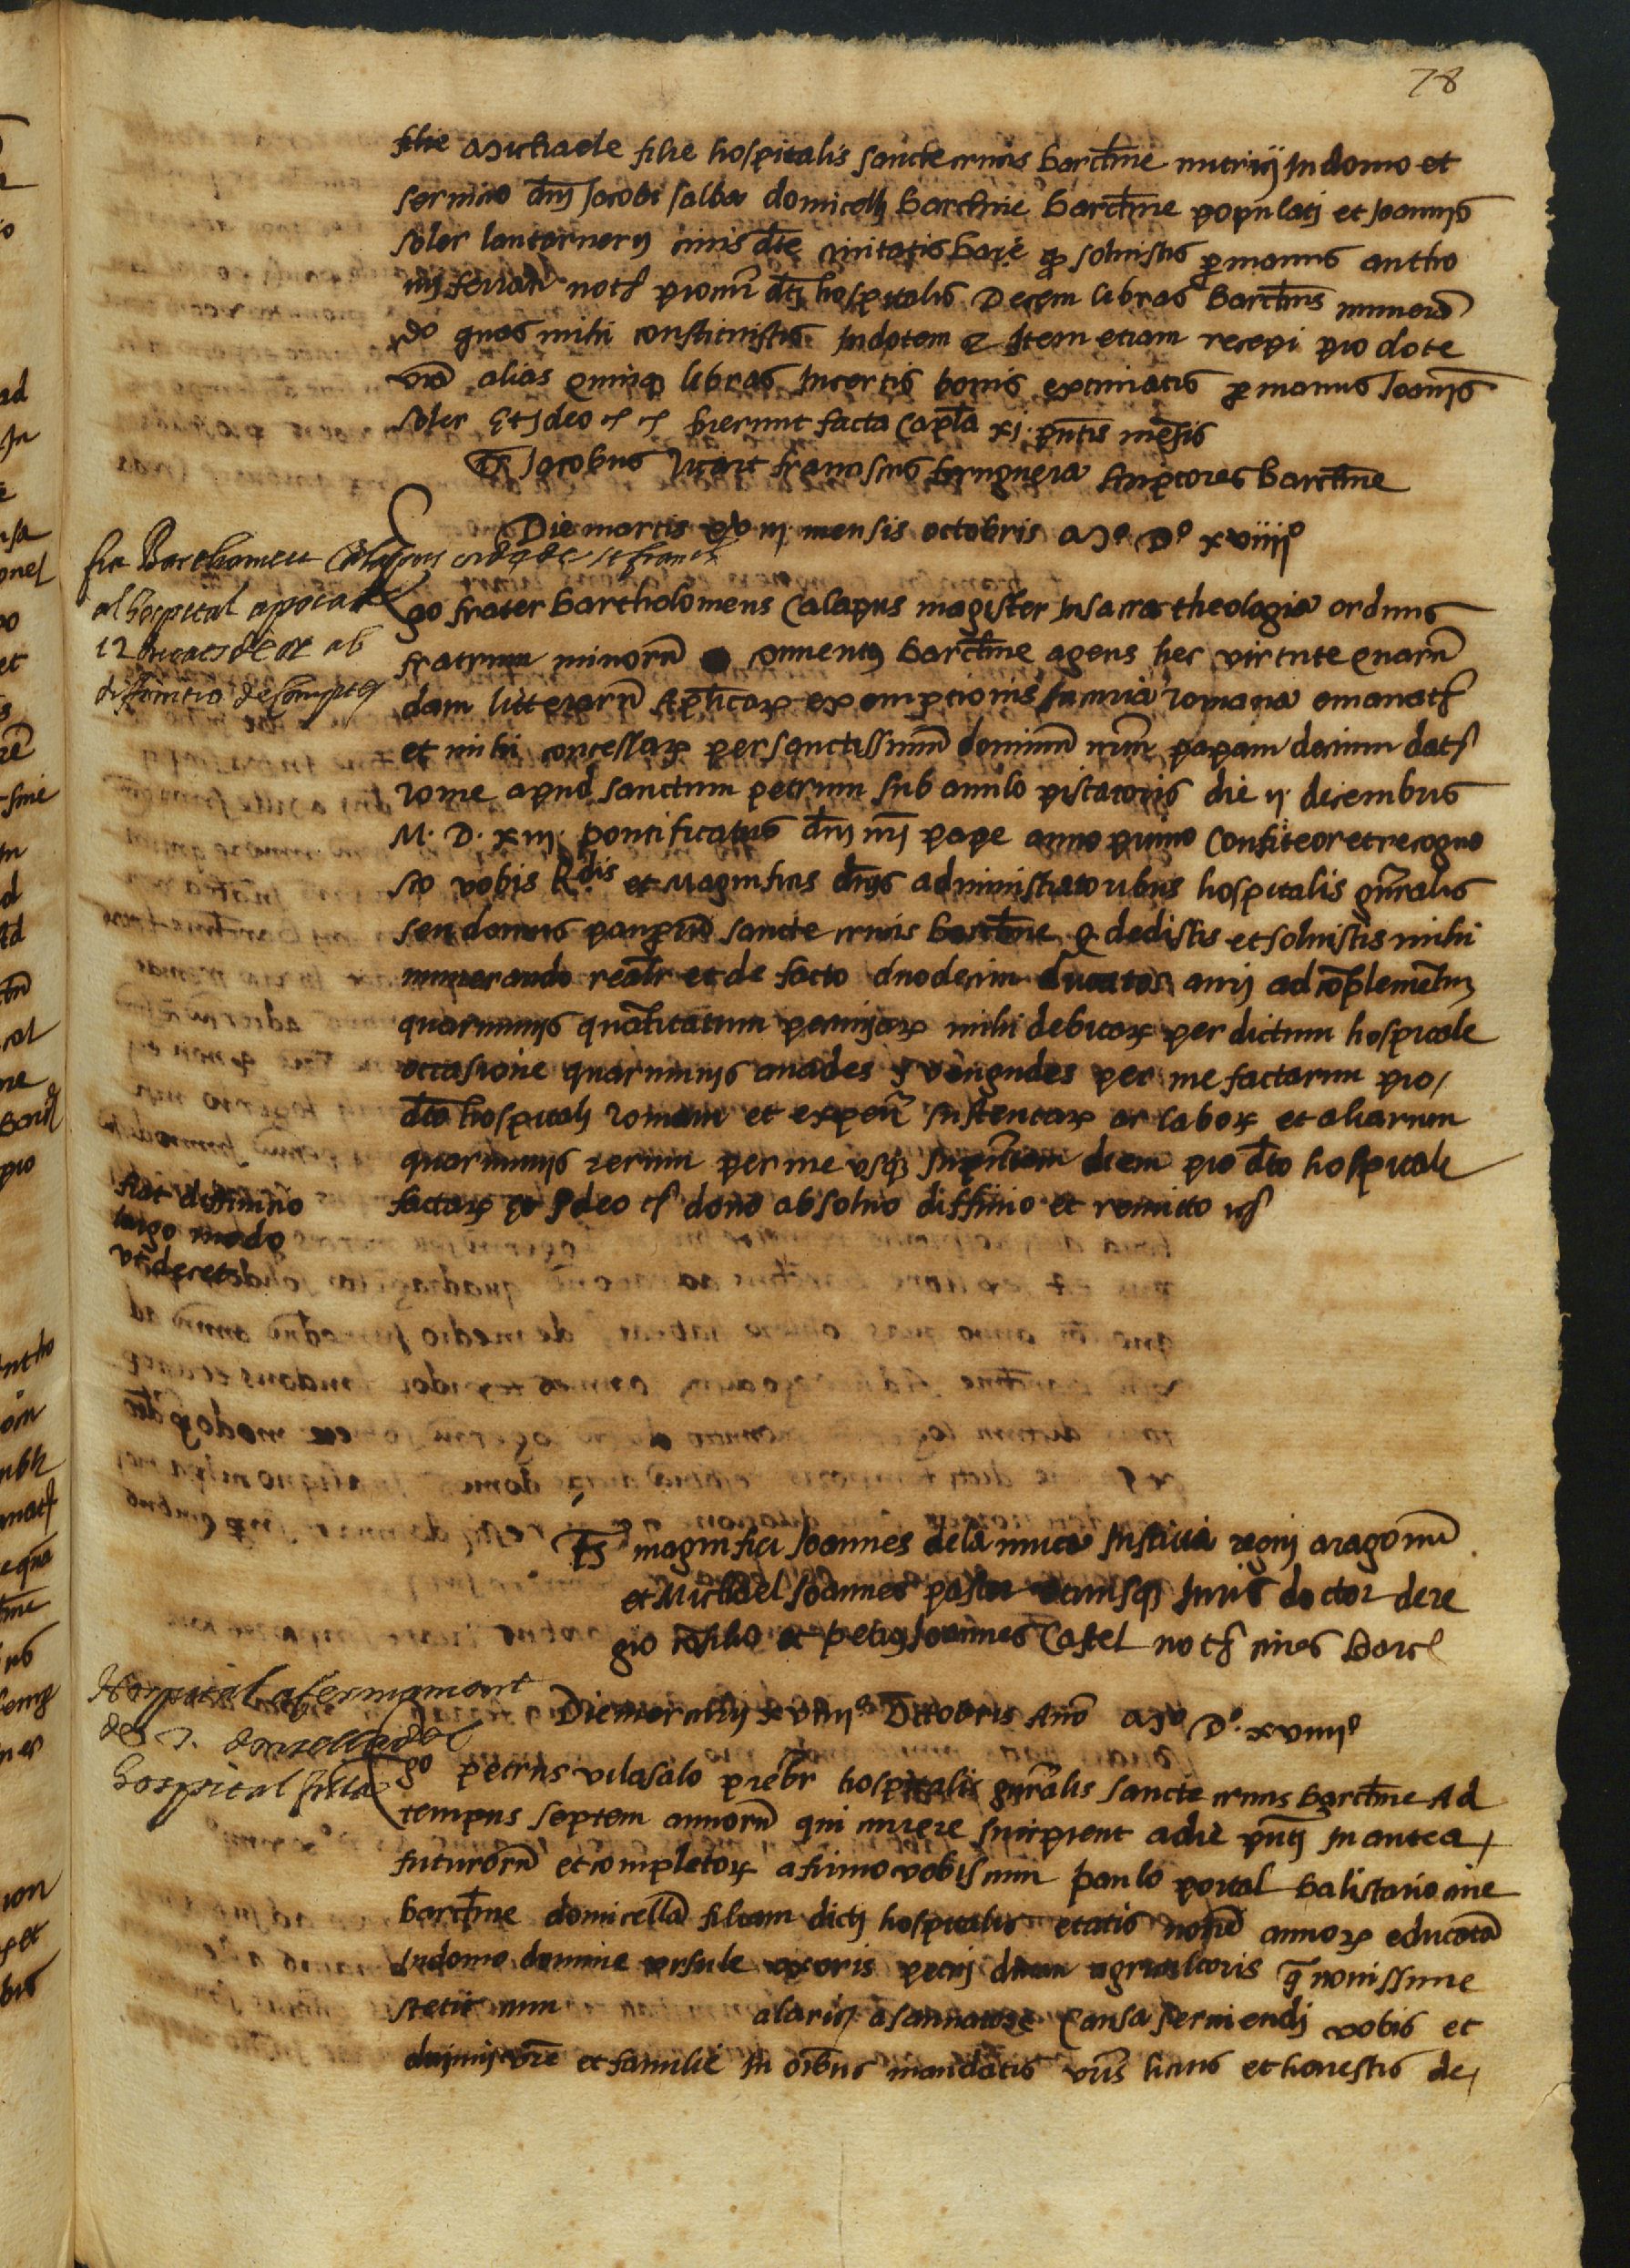 78
filie Michaele filie hospitalis sancte crucis barchne nutrij In domo et
seruicio dnj Jacobi salba domicellj barchne barchne populatj et Joannis
soler lanternerij ciuis dte ciuitatis barc q soluistis p manus antho
nij ferran not procur dtj hospitalis Decem libras barchns numeran
do quas mihi constituistis In dotem & Item etiam recepi pro dote
mea alias quinq libras In certis bonis extimatis p manus Joannis
soler Et Ideo fuerunt facta Capla xj pntis mensis
Ts Jacobus francischus brunguera scriptores barchne
Die martis xviij mensis octobris Mº Dº xviiijº
fra Barthomeu Calapus orde de st franch
al hospital apoca de
12 ducats de or ab
diffinitio de comptes
Ego frater bartholomeus Calapus magister In sacra theologia ordinis
fratrum minorum conuentus barchne agens hec virtute quarun
dam litterarum Aplicar exemptionis In curia romana emanat
et mihi concessar per sanctissimum dominum nrm papam decimum dat
rome apud sanctum petrum sub annulo piscatoris die ij decembris
M. D. xiij. pontificatus dnj nrj pape anno primo Confiteor et recogno
sco vobis Rdis et Magnificis dnis administratoribus hospitalis gnralis
seu domus pauperum sancte crucis barchne q dedistis et soluistis mihi
numerando realr et de facto duodecim ducatos aurj ad complementum
quarumuis quantitatum peccuniar mihi debitar per dictum hospitale
occasione quarumuis anades y vengudes per me factarum pro
dto hospitali romam et expen sustentar ac labor et aliarum
quarumuis rerum per me vsq In pntem diem pro dto hospitali
factar Et Ideo dono absoluo diffinio et remitto
fiat diffinitio
largo modo
vt decet
Ts magnifici Joannes dela nuca Justicia regnj aragonum
et Michael Joannes pastor vtriusq Juris doctor de re
gio consilio et petrus Joannes Castel not ciues barc
Hospital afermament
de donzella del
hospital filla
Die mercurij xviiij Octobris Anno Mº Dº xviiijº
Ego petrus vilasalo prebr hospitalis gnralis sancte crucis barchne Ad
tempus septem annorum qui currere Incipient a die pntj In antea
futurorum et completor afirmo vobiscum paulo portal balistario ciue
barchne domicellam filiam dictj hospitalis etatis annor educatam
In domo domine vrsule vxoris petrj agricultoris q nouissime
stetit cum alarij Causa seruiendj vobis et
domuj vre et familie In oibus mandatis vris licitis et honestis de